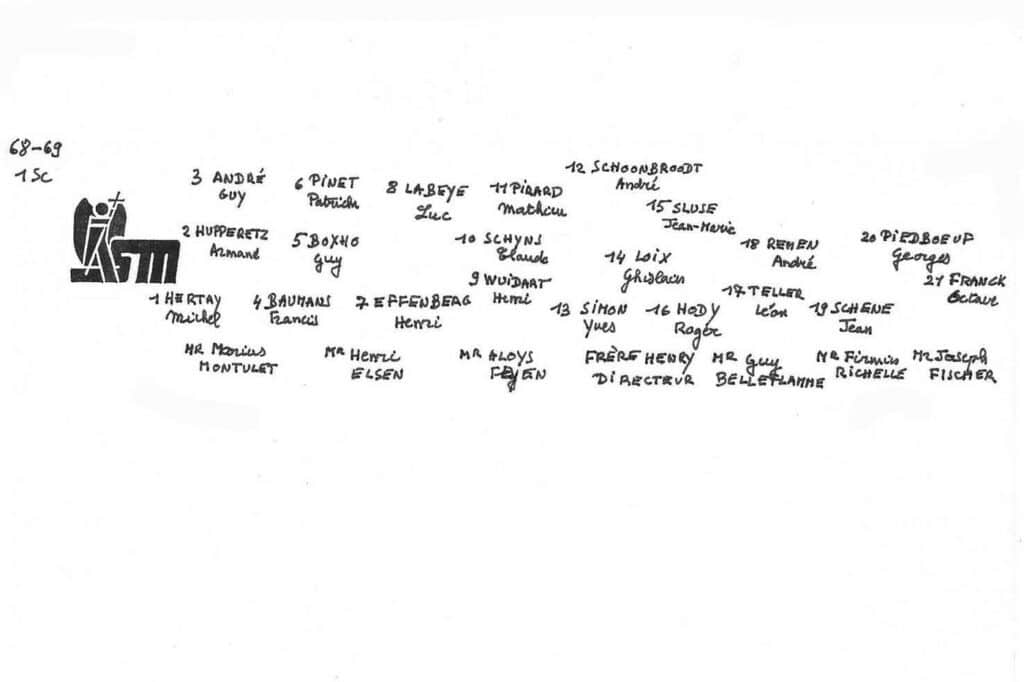 68-69
1 Sc
3 ANDRÉ
GUY
6 PINET
Patrick
8 LABEYE
Luc
11 PIRARD
Mathieu
12 SCHOONBROODT
André
15 SLUSE
Jean-Marie
2 HUPPERETZ
Armand
5 BOXHO
Guy
10 SCHYNS
Claude
14 LOIX
Ghislain
18 REMEN
André
20 PIEDBOEUF
Georges
9 WUIDART
Henri
21 FRANCK
Octave
1 HERTAY
Michel
4 BAUMANS
Francis
7 EFFENBERG
Henri
13 SIMON
Yves
16 HODY
Roger
17 TELLER
Léon
19 SCHENE
Jean
MR Marius
MONTULET
MR Henri
ELSEN
MR ALOYS
FEYEN
FRÈRE HENRY
DIRECTEUR
MR Guy
BELLEFLAMME
MR Firmin
RICHELLE
MR Joseph
FISCHER